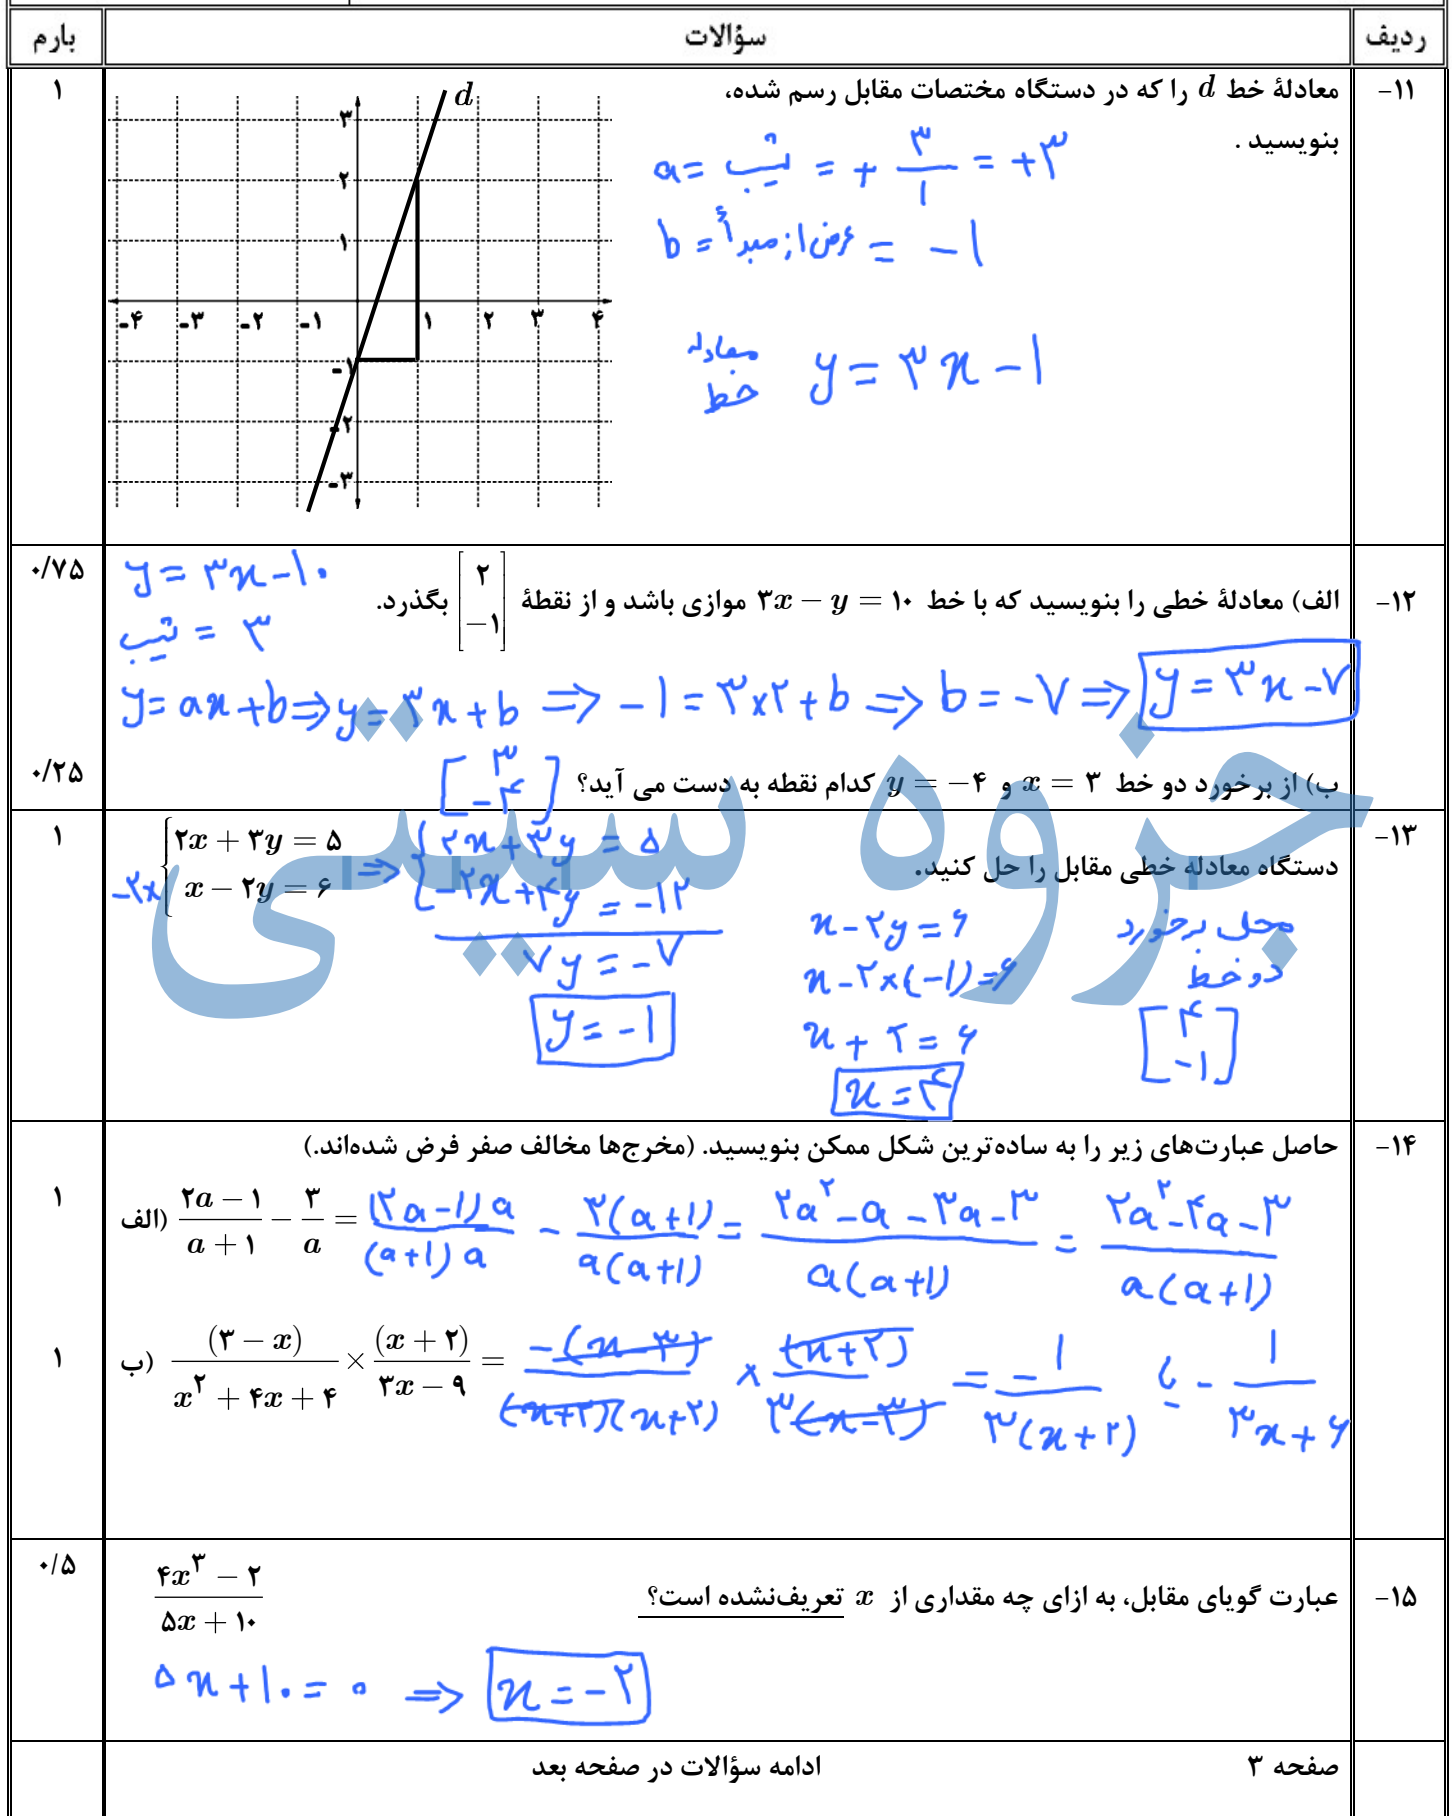 ردیف	سؤالات	بارم
۱۱-	معادلهٔ خط d را که در دستگاه مختصات مقابل رسم شده،	۱
بنویسید .
d
۳
۲
۱
-۴ -۳ -۲ -۱ ۱ ۲ ۳ ۴
-۱
-۲
-۳
a = شیب = + ۳/۱ = +۳
b = عرض از مبدأ = -۱
معادله خط y = ۳x - ۱
۱۲-	الف) معادلهٔ خطی را بنویسید که با خط ۳x − y = ۱۰ موازی باشد و از نقطهٔ [۲ −۱] بگذرد.	۰/۷۵
y = ۳x - ۱۰
شیب = ۳
y = ax + b ⇒ y = ۳x + b ⇒ -۱ = ۳×۲ + b ⇒ b = -۷ ⇒ y = ۳x - ۷
ب) از برخورد دو خط x = ۳ و y = −۴ کدام نقطه به دست می آید؟ [۳ -۴]	۰/۲۵
جزوه سیتی
۱۳-	دستگاه معادله خطی مقابل را حل کنید.	۱
{۲x + ۳y = ۵ ⇒ {۲x + ۳y = ۵
-۲× {x − ۲y = ۶ {-۲x + ۴y = -۱۲
۷y = -۷
y = -۱
x - ۲y = ۶
x - ۲×(-۱) = ۶
x + ۲ = ۶
x = ۴
محل برخورد
دو خط
[۴ -۱]
۱۴-	حاصل عبارت‌های زیر را به ساده‌ترین شکل ممکن بنویسید. (مخرج‌ها مخالف صفر فرض شده‌اند.)
الف) (۲a − ۱)/(a + ۱) − ۳/a = (۲a-۱)a/(a+۱)a - ۳(a+۱)/a(a+۱) = (۲a² - a - ۳a - ۳)/a(a+۱) = (۲a² - ۴a - ۳)/a(a+۱)	۱
ب) (۳ − x)/(x² + ۴x + ۴) × (x + ۲)/(۳x − ۹) = -(x-۳)/(x+۲)(x+۲) × (x+۲)/۳(x-۳) = -۱/۳(x+۲) یا - ۱/(۳x+۶)	۱
۱۵-	عبارت گویای مقابل، به ازای چه مقداری از x تعریف‌نشده است؟ (۴x³ − ۲)/(۵x + ۱۰)	۰/۵
۵x + ۱۰ = ۰ ⇒ x = -۲
صفحه ۳	ادامه سؤالات در صفحه بعد